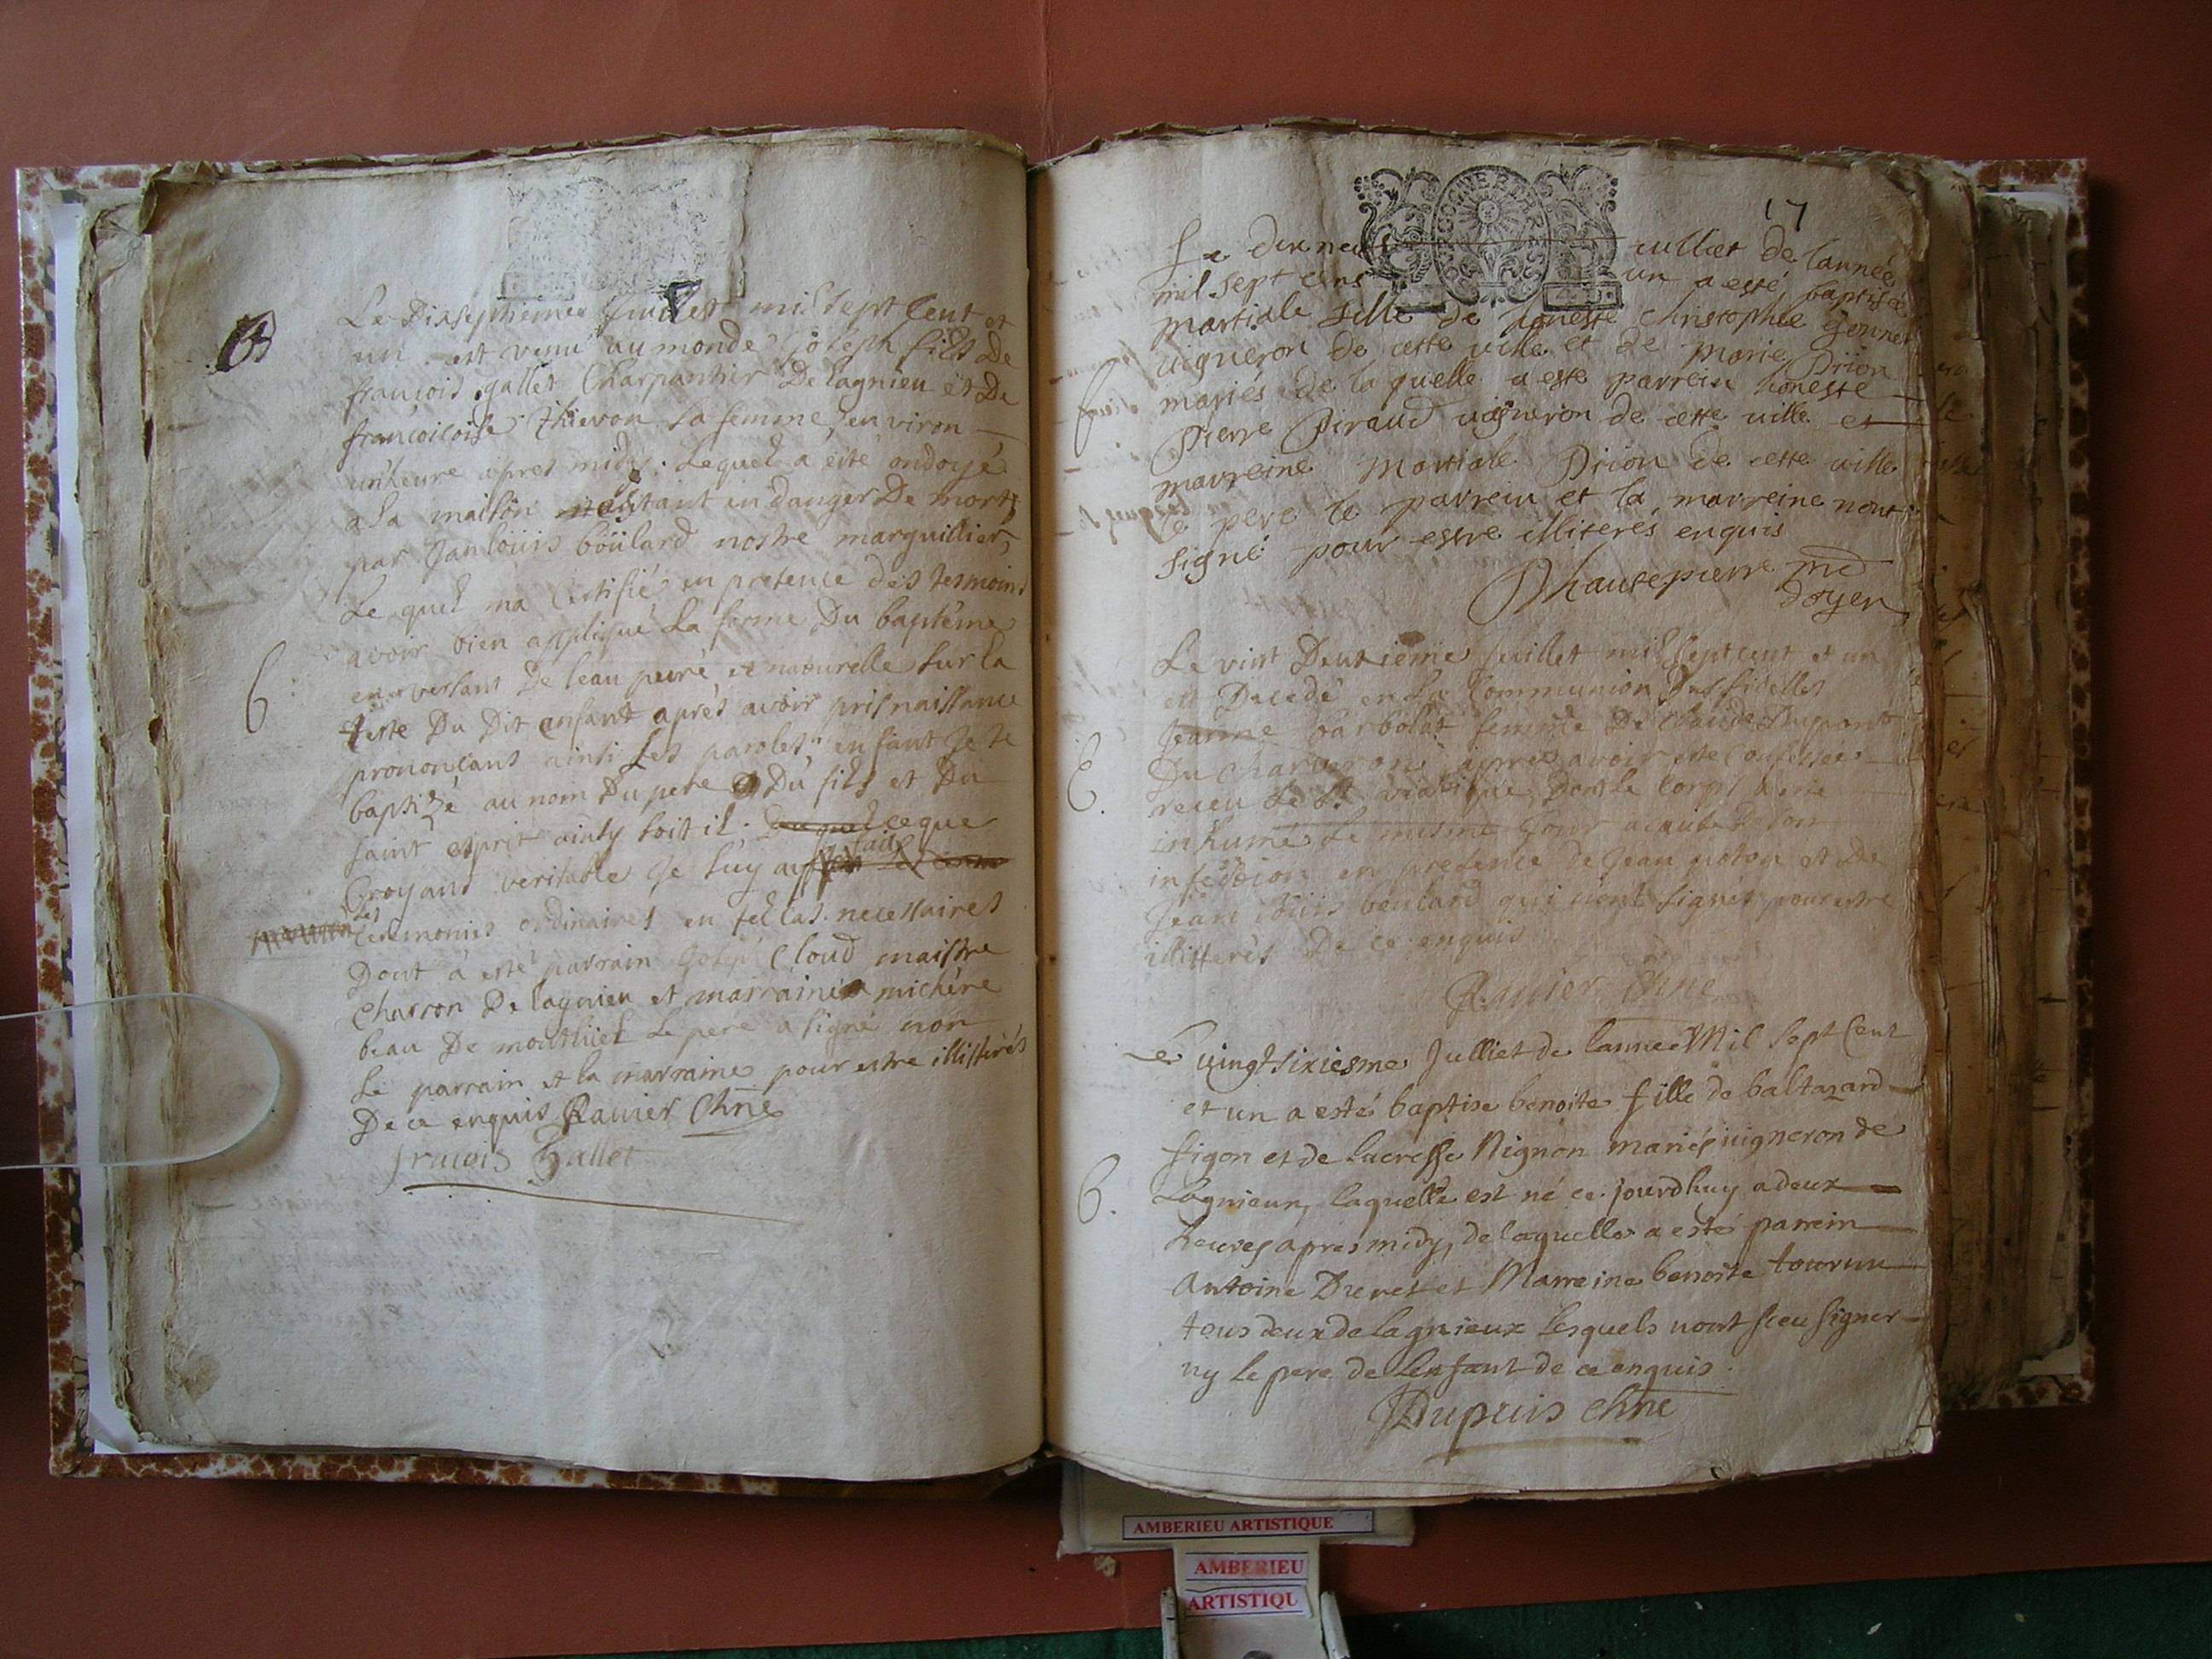 Le Dixsepthieme Juillet mil sept Cent et
un est venu au monde Joseph fils De
francois gallet Charpantier De lagnieu et De
francoicoise Thievon sa femme, environ
un heure apres midy. Lequel a eité ondoyé
a la maison estant en danger De mort
par Janlouis boulard nostre marguillier,
Le quel ma Certifié en presence des tesmoins
avoir bien appliqué La forme Du baptême
6:
en versant De leau pure et naturelle sur la
teste Du Dit enfant aprés avoir pris naissance
prononcant ainsi Les paroles: enfant Je te
baptizé au nom Du pere et Du fils et Du
saint esprit ainsy soit il. ce que
Croyant veritable Je luy ay fait
les
Ceremonies ordinaires en tel cas necessaires
Dont à esté parrain Joseph Cloud maistre
Charron De lagnieu et marraine michére
beau De montluel Le pere a signé non
Le parrain et la marraine pour estre illisterés
De ce enquis Ravier Chne
francois Gallet
17
Le dix neuf julliet de lannée
mil sept cens un a esté baptisée
martiale fille de honeste christophle
vigneron de cette ville et de marie Dirion
mariés de la quelle a este parrein honeste
Pierre Piraud vigneron de cette ville et
marreine Martiale Dirion de cette ville
le pere le parrein et la marreine nont
signé pour estre illiterés enquis
Dhautepierre
doyen
Le vint Deuxieme Juillet mil sept cent et un
est Decedé en la Communion Des fidelles
Jeanne barbolat femme De Claude Dupont
Du Charveron apres avoir esté Confessée
E.
receu le St viatique, Dont le Corps a esté
inhumé Le mesme Jour a cause De son
infection en presence de Jean et De
Jean Louis boulard qui nont signés pour estre
illisterés De ce enquis
Ravier Chne
Le vingt sixiesme Julliet de lannee Mil sept Cent
et un a esté baptise benoite fille de baltazard
figon et de lucresse Nignon mariés vigneron de
6.
Lagnieux, laquelle est né ce jourdhuy a deux
heures apres midy, de laquelle a esté parrein
Antoine et Marreine benoite
tous deux de lagnieux lesquels nont sceu signer
ny le pere de lenfant de ce enquis.
JDupuis chne
AMBERIEU ARTISTIQUE
AMBERIEU
ARTISTIQU